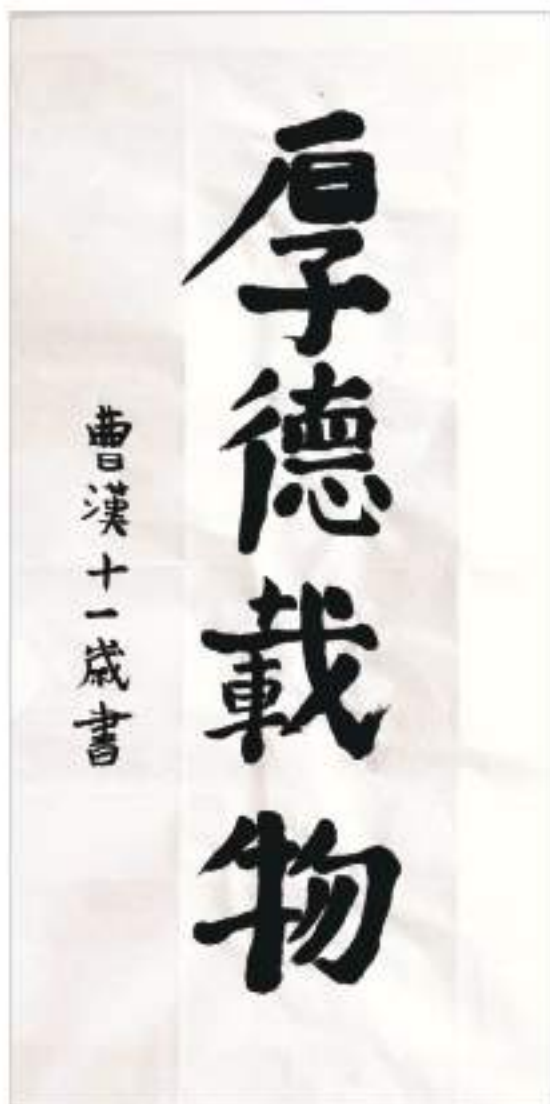 厚德載物
曹漢十一歲書